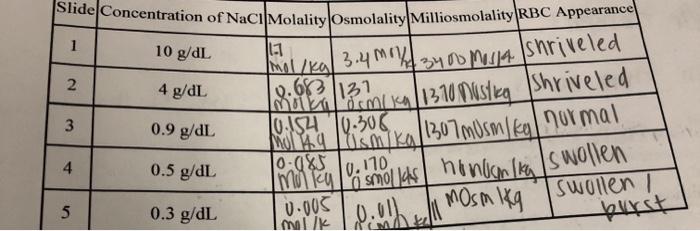 Slide Concentration of NaCl Molality Osmolality Milliosmolality RBC Appearance
1 10 g/dL 1.7 mol/kg 3.4 shriveled
2 4 g/dL 0.683 mol/kg 1.37 osm/kg 1370 shriveled
3 0.9 g/dL 0.154 mol/kg 0.306 osm/kg 1307 mOsm/kg normal
4 0.5 g/dL 0.085 mol/kg 0.170 swollen
5 0.3 g/dL 0.005 mol/k 0.011 11 mOsm/kg swollen /
burst